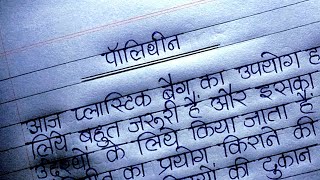 पॉलिथीन
आज प्लास्टिक बैग का उपयोग ह
लिये बहुत जरूरी है और इसका
के लिये किया जाता है
का प्रयोग, किराने की
की दुकान